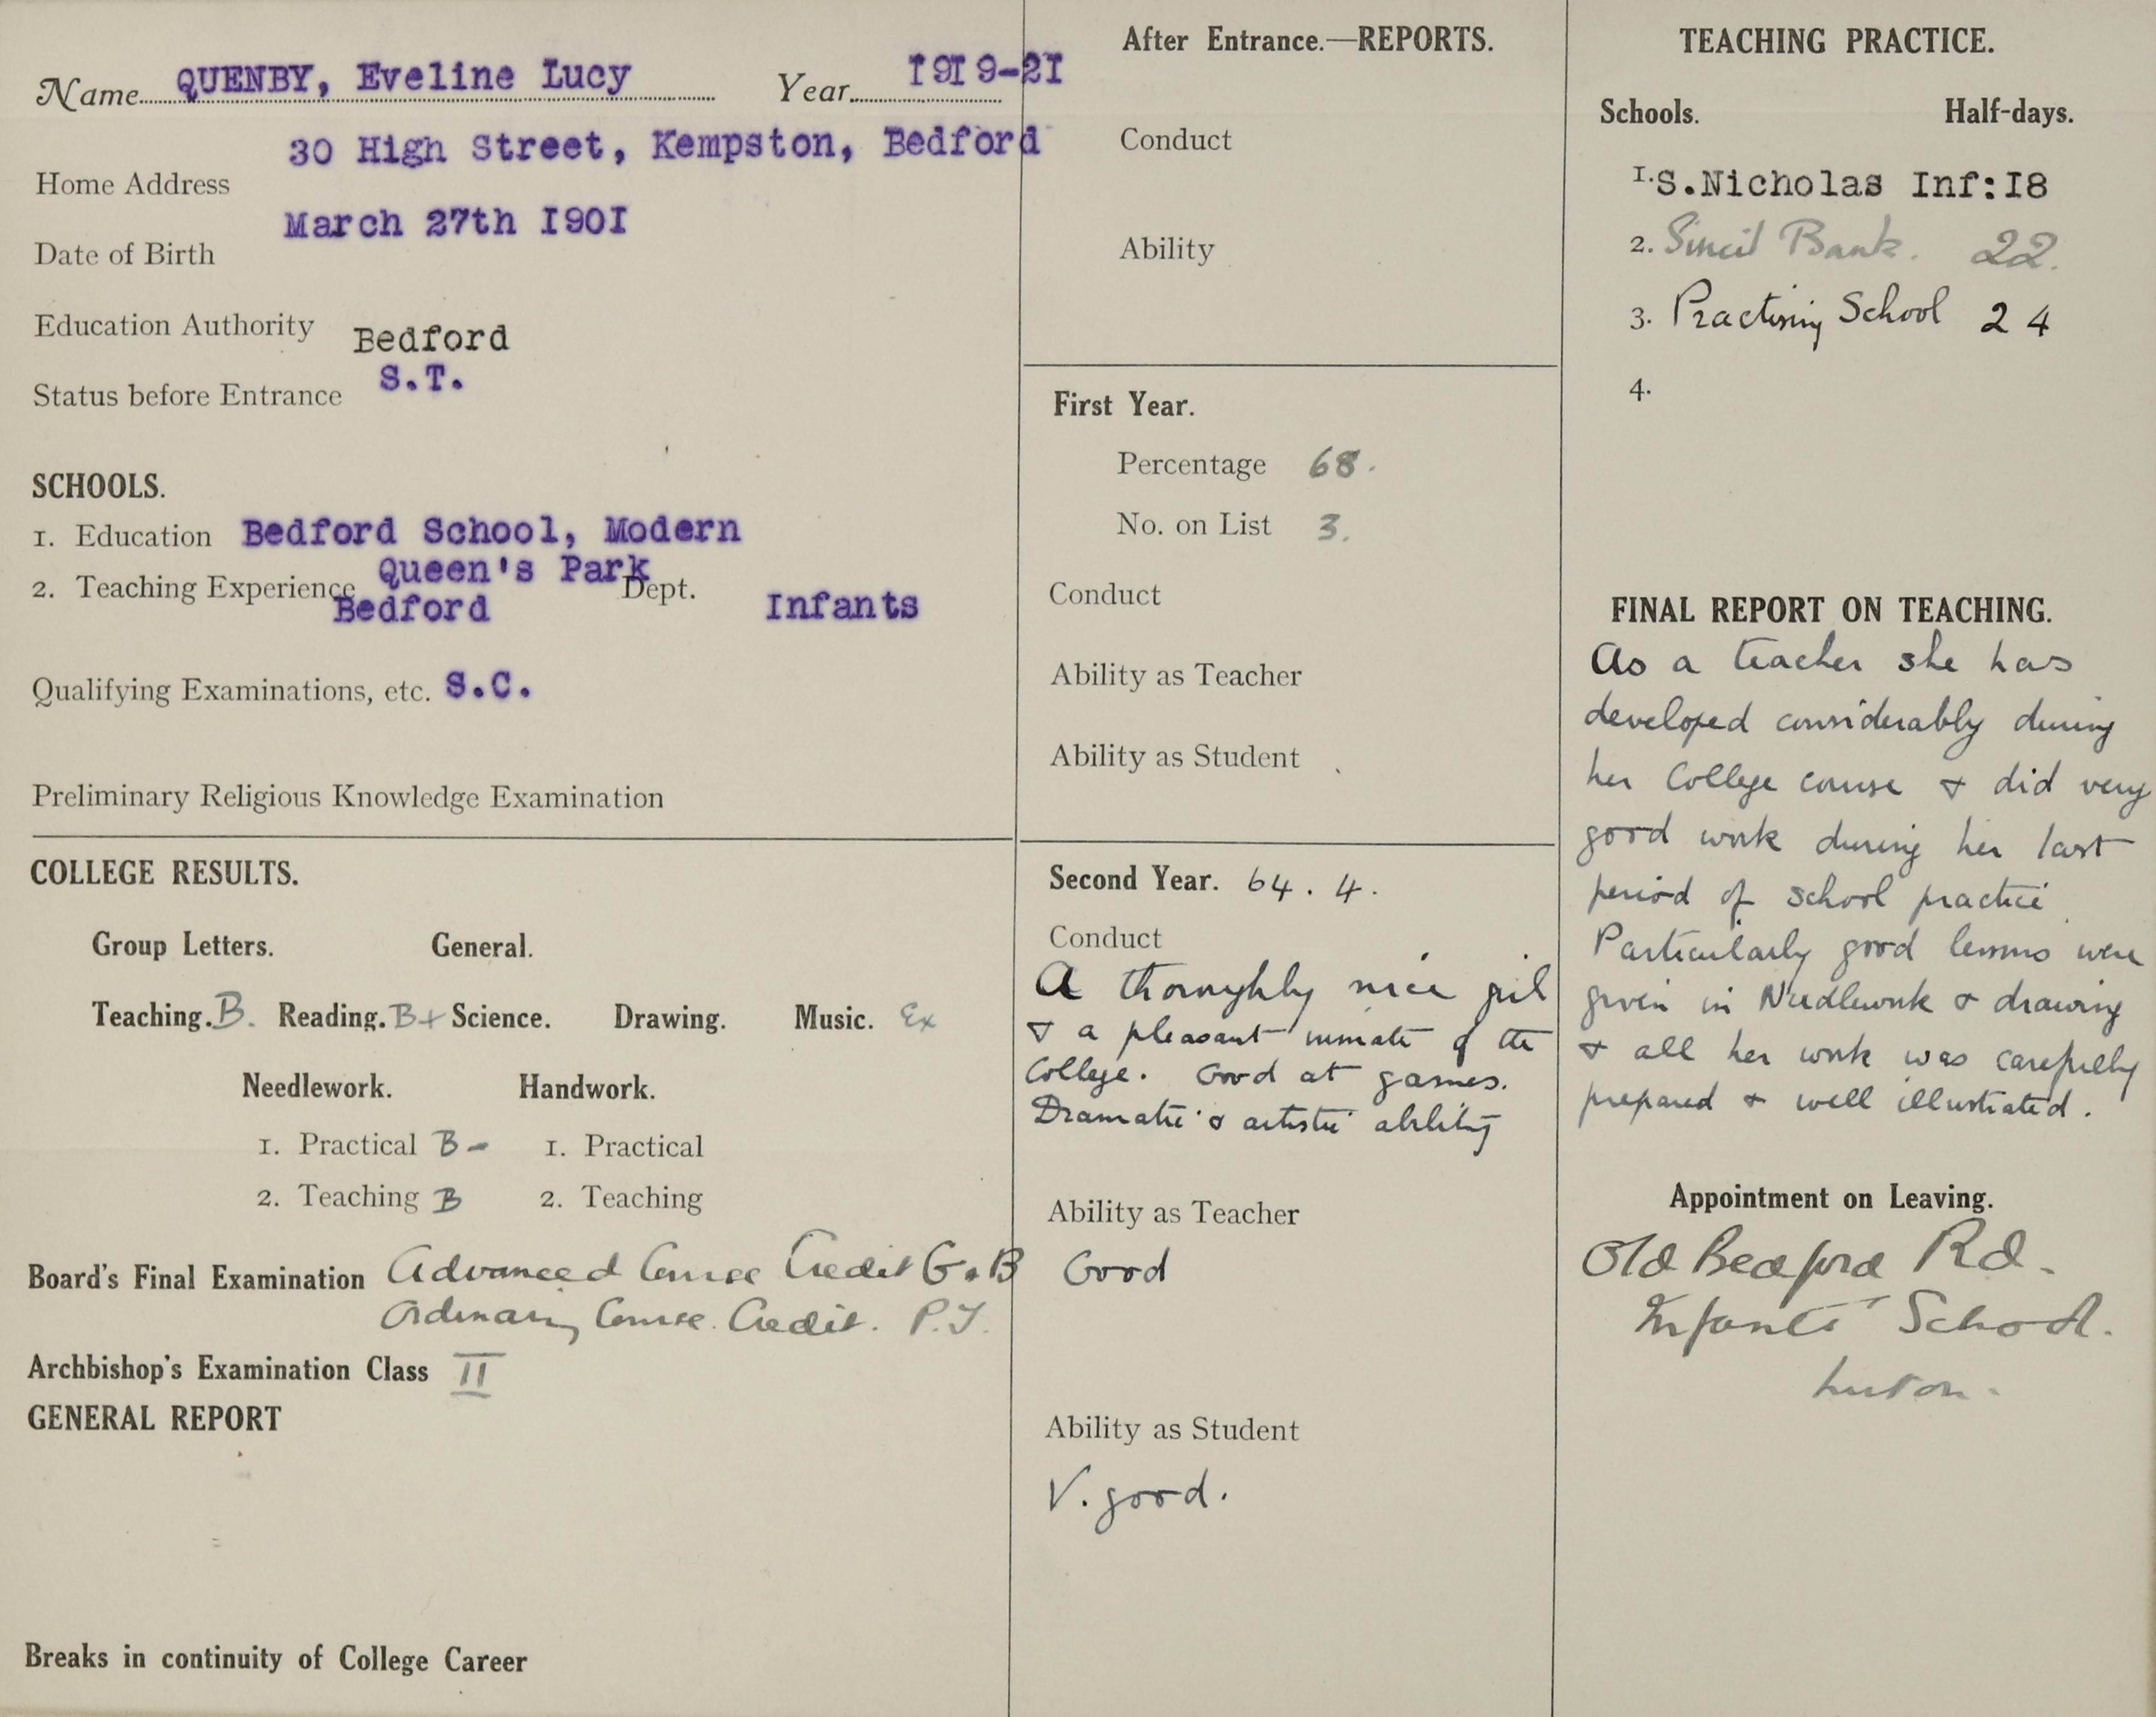 Name QUENBY, Eveline Lucy Year 1919-21
30 High Street, Kempston, Bedford
Home Address
March 27th 1901
Date of Birth
Education Authority Bedford
Status before Entrance S.T.
SCHOOLS.
1. Education Bedford School, Modern
2. Teaching Experience Queen's Park Dept. Infants
Bedford
Qualifying Examinations, etc. S.C.
Preliminary Religious Knowledge Examination
COLLEGE RESULTS.
Group Letters. General.
Teaching. B. Reading. B+ Science. Drawing. Music. Ex
Needlework. Handwork.
1. Practical B- 1. Practical
2. Teaching B 2. Teaching
Board's Final Examination Advanced Course Credit G. B
Ordinary Course. Credit. P.T.
Archbishop's Examination Class II
GENERAL REPORT
Breaks in continuity of College Career
After Entrance.—REPORTS.
Conduct
Ability
First Year.
Percentage 68.
No. on List 3.
Conduct
Ability as Teacher
Ability as Student
Second Year. 64. 4.
Conduct
A thoroughly nice girl
& a pleasant inmate of the
College. Good at games.
Dramatic & artistic ability
Ability as Teacher
Good
Ability as Student
V. good.
TEACHING PRACTICE.
Schools. Half-days.
1. S.Nicholas Inf: 18
2. Sincil Bank. 22.
3. Practising School 24
4.
FINAL REPORT ON TEACHING.
As a teacher she has
developed considerably during
her College course & did very
good work during her last
period of school practice.
Particularly good lessons were
given in Needlework & drawing
& all her work was carefully
prepared & well illustrated.
Appointment on Leaving.
Old Bedford Rd.
Infants' School.
Luton.